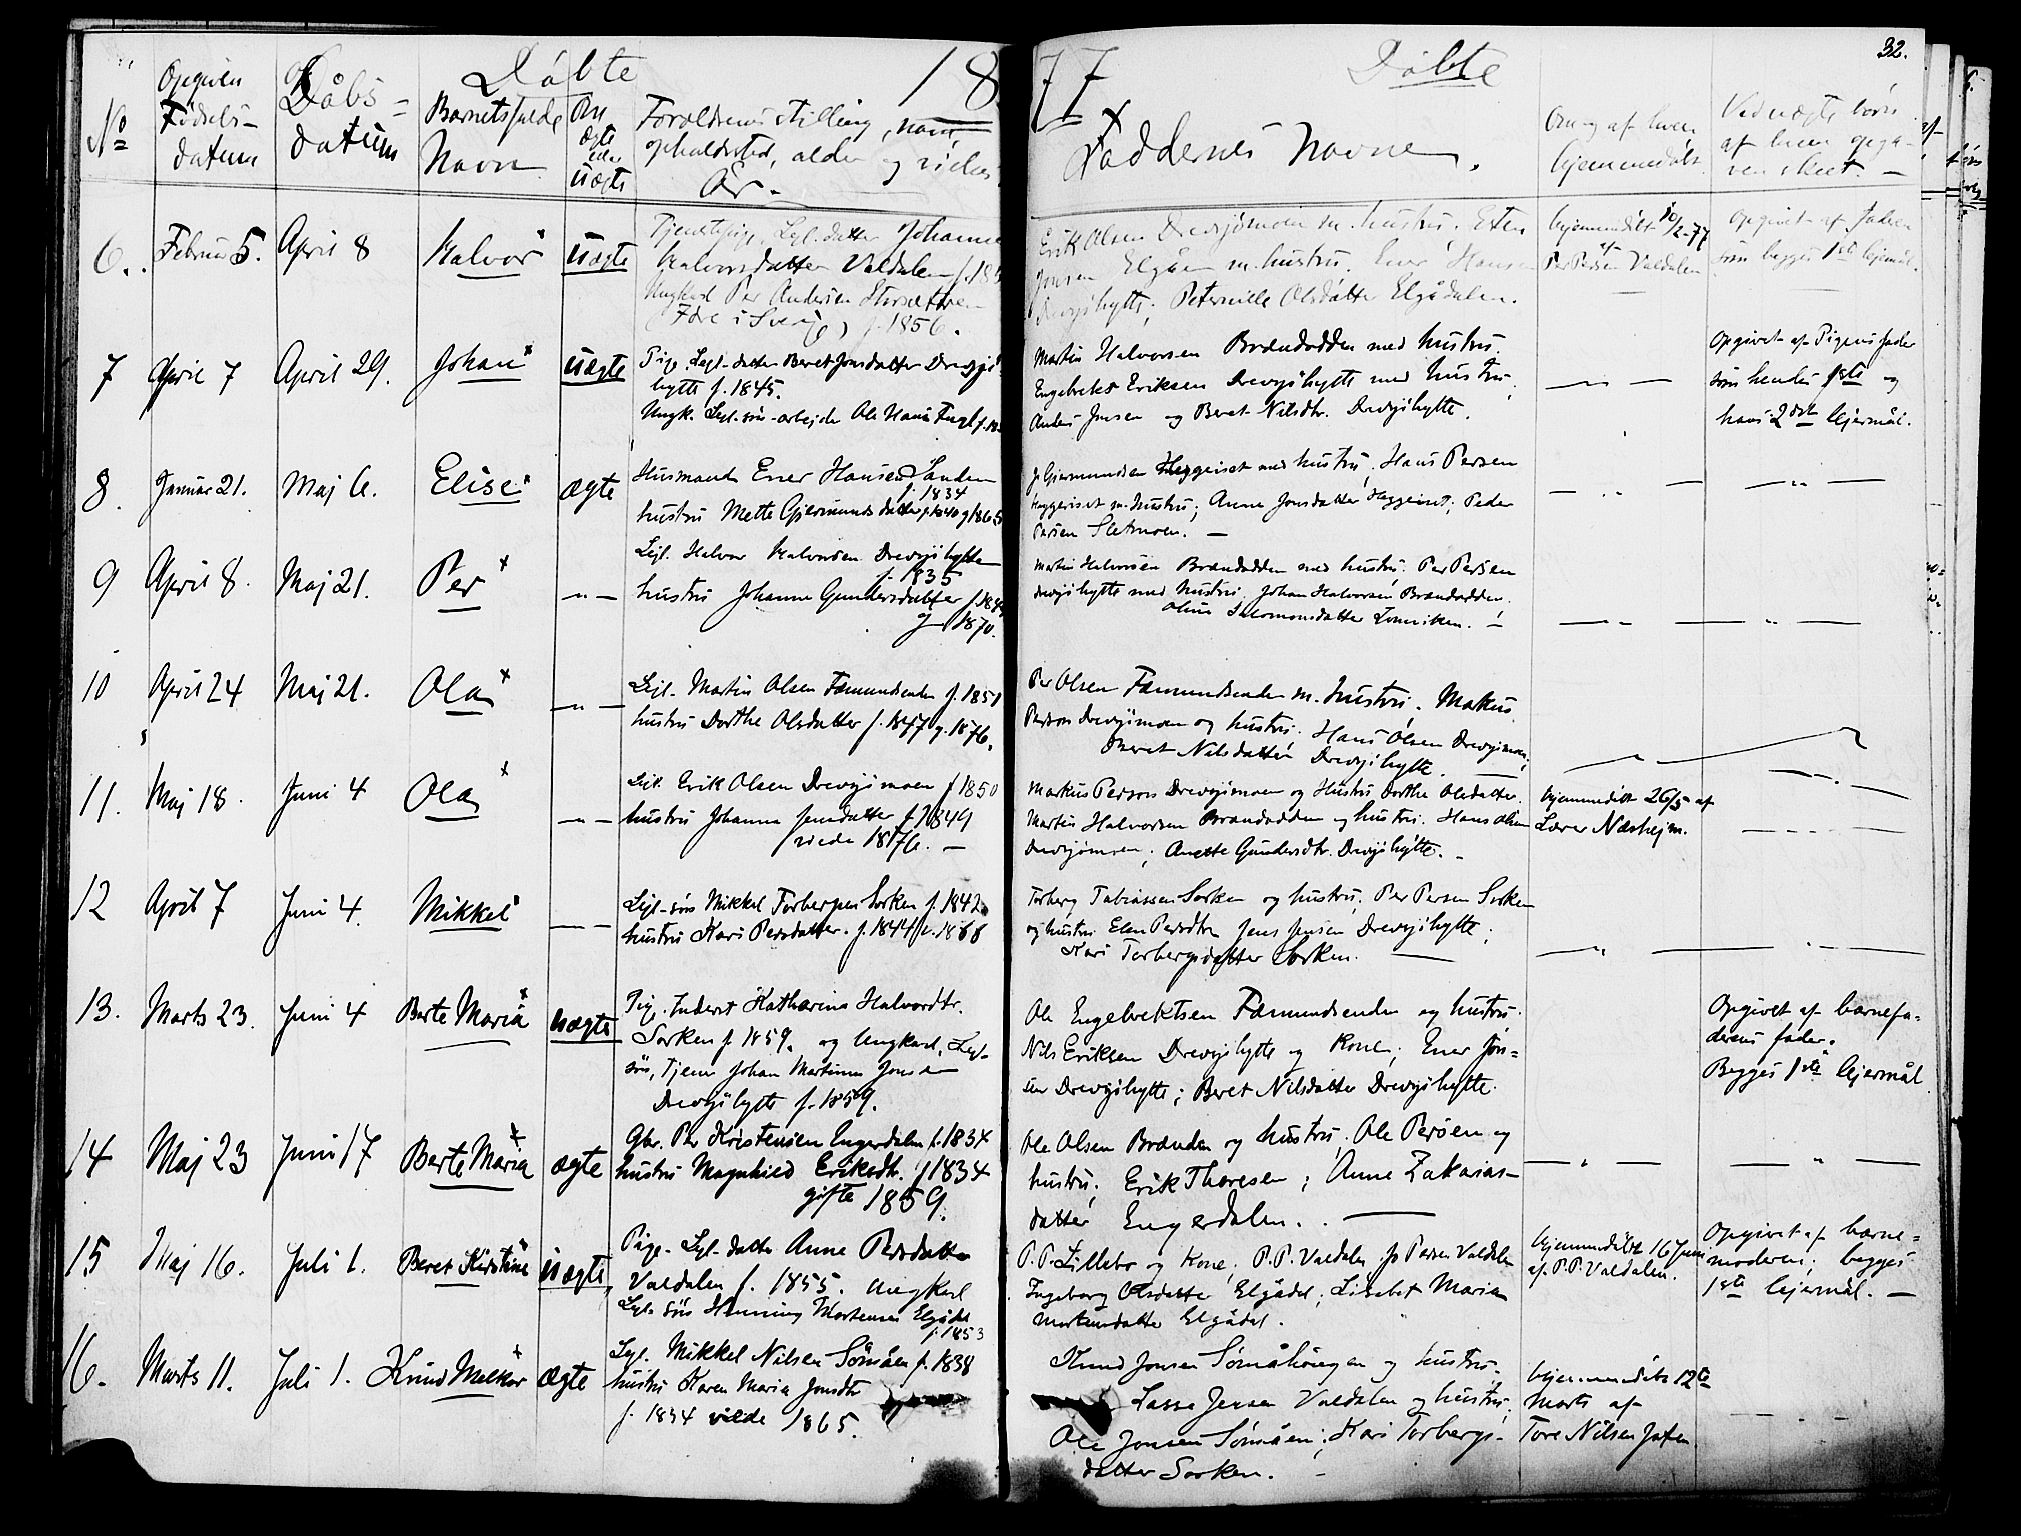 Døbte 18
77 Døbte 32.
No
Opgiven Fødsels-datum
Dåbs-datum
Barnets fulde Navn
Om ægte eller uægte
Forældrenes stilling, navn,
opholdssted, alder og vielses
År.
Faddernes Navne.
Om og af hvem hjemmedøbt.
Ved uægte børn af hvem opgaven skeet.
6. Februar 5. April 8 Halvor uægte
Tjenestepige, Lejl. datter Johanne
Halvorsdatter Valdalen f. 185
Ungkarl Per Andersen Storsætren
Idre i Sverig f. 1856.
Erik Olsen Drevsjømoen m. hustru. Esten
Jonsen Elgåen m. hustru. Ener Hansen
Drevsjøhytte; Peternille Olsdatter Elgådalen.
hjemmedøbt 10/2-77
af
Per Persen Valdalen
Opgivet af Faderen
som begges 1ste lejermål.
7 April 7 April 29. Johan uægte
Pige Lejl. datter Beret Jonsdatter Drevsjø
hytte f. 1845.
Ungk. Lejl-søn-arbejder Ole Hansen
Martin Halvorsen Brændodden med hustru.
Engebrekt Eriksen Drevsjøhytte med hustru.
Anders Jonsen og Beret Nilsdtr. Drevsjøhytte.
Opgivet af Pigens fader
som hendes 1ste og
hans 2det lejermål.
8. Januar 21. Maj 6. Elise ægte
Husmand Ener Hansen Sanden
f. 1834
hustru Mette Gjermundsdatter f. 1840 g 1865
Jo Gjermundsen Heggeriset med hustru, Hans Persen
Heggeriset m. hustru; Anne Jonsdatter Heggeriset; Peder
Persen Sletmoen. —
9 April 8. Maj 21. Per — " —
Lejl. Halvor Halvorsen Drevsjøhytten
f. 1835
hustru Johanne Gundersdatter f. 184
g 1870.
Martin Halvorsen Brændodden med hustru. Per Persen
Drevsjøhytte med hustru. Johan Halvorsen Brændodden.
Oline Salomonsdatter
10 April 24 Maj 21. Ola — " —
Lejl. Martin Olsen Fæmundsenden f. 1851
hustru Dorthe Olsdatter f. 1847 g. 1876.
Per Olsen Fæmundsenden m. hustru. Markus
Persen Drevsjømoen og hustru. Hans Olsen Drevsjømoen;
Beret Nilsdatter Drevsjøhytte.
11. Maj 18. Juni 4 Ola — " —
Lejl. Erik Olsen Drevsjømoen f 1850
hustru Johanna Jensdatter f. 1849
viede 1876. —
Markus Persen Drevsjømoen og Hustru Dorthe Olsdatter.
Martin Halvorsen Brændodden og hustru. Hans Olsen
Drevsjømoen; Anette Gundersdtr. Drevsjøhytte. –
hjemmedøbt 26/5 af
Lærer Næshejm.
12 April 7 Juni 4. Mikkel — —
Lejl-søn Mikkel Torbergsen Sorken f. 1842
hustru Kari Persdatter. f. 1844 v. 1868
Torberg Tobiassen Sorken og hustru; Per Persen Sorken
og hustru Elen Persdtr. Jens Jensen Drevsjøhytte;
Kari Torbergsdatter Sorken.
13. Marts 23. Juni 4 Berte Maria uægte
Pige. Inderst Katharina Halvordtr.
Sorken f 1859. og Ungkarl, Lejl-
søn, Tjener Johan Martinus Jonsen
Drevsjøhytte f. 1859.
Ole Engebrektsen Fæmundsenden og hustru.
Nils Eriksen Drevsjøhytte og Kone; Ener Jon-
sen Drevsjøhytte; Beret Nilsdatter Drevsjøhytte.
Opgivet af barnefa-
derens fader.
Begges 1ste lejermål
14 Maj 23 Juni 17 Berte Maria ægte
Gbr. Per Kristensen Engerdalen f. 1834
hustru Magnhild Eriksdtr. f 1834
gifte 1859.
Ole Olsen Brænden og hustru. Ole Persen og
hustru. Erik Thoresen; Anne Zakarias-
datter Engerdalen.
15 Maj 16. Juli 1. Beret Kirstine uægte
Pige. Lejl-datter Anne Persdatter
Valdalen f. 1855. Ungkarl
Lejl. søn Henning Mortensen Elgådal
f. 1853
P. P. Lillebo og Kone; P. P. Valdalen Jo Persen Valdalen
Ingeborg Olsdatter Elgådal; Lisabet Maria
Mortensdatter Elgådal.
hjemmedøbt 16 Juni
af P. P. Valdalen.
Opgivet af barne-
moderen; begges
1ste lejermål. —
16. Marts 11. Juli 1. Knud Melkior ægte
Lejl. Mikkel Nilsen Sømåen f. 1838
hustru Karen Maria Jonsdtr
f. 1834 viede 1865.
Knud Jonsen Sømåhaugen og hustru,
Lasse Jensen Valdalen og hustru;
Ole Jonsen Sømåen; Kari Torbergs-
datter Sorken. –
hjemmedøbt 12te
Marts af
Tore Nilsen